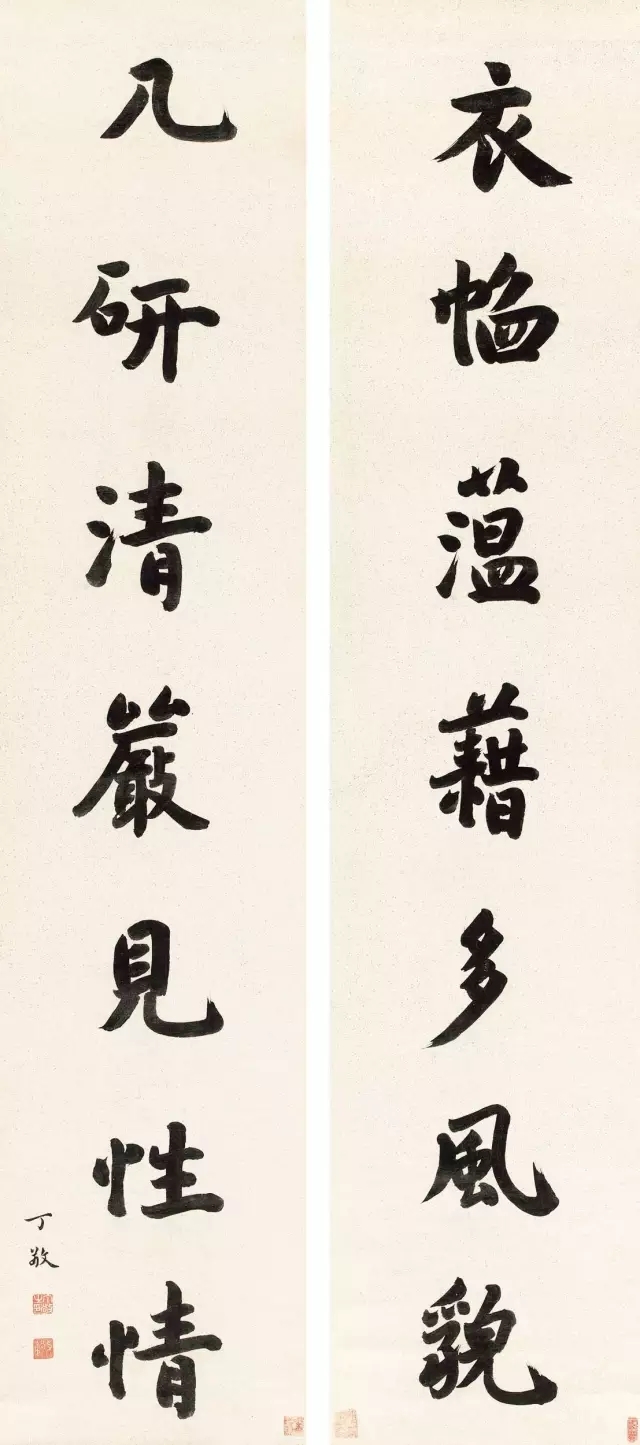 衣幍蕰藉多風貌
几研清嚴見性情
丁敬